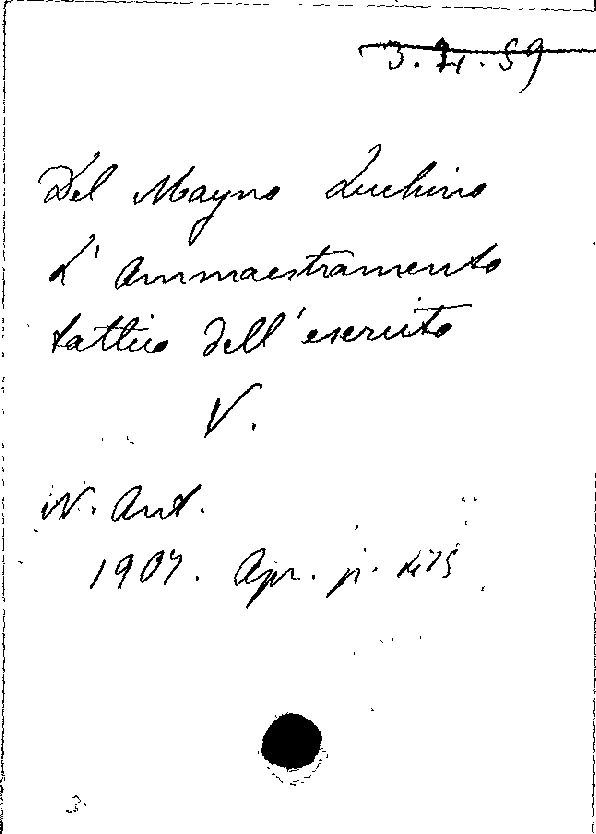 3. 21. 59
Del Mayno Luchino
L'ammaestramento
tattico dell'esercito
V.
N. Ant.
1907. Apr. p. 475
3